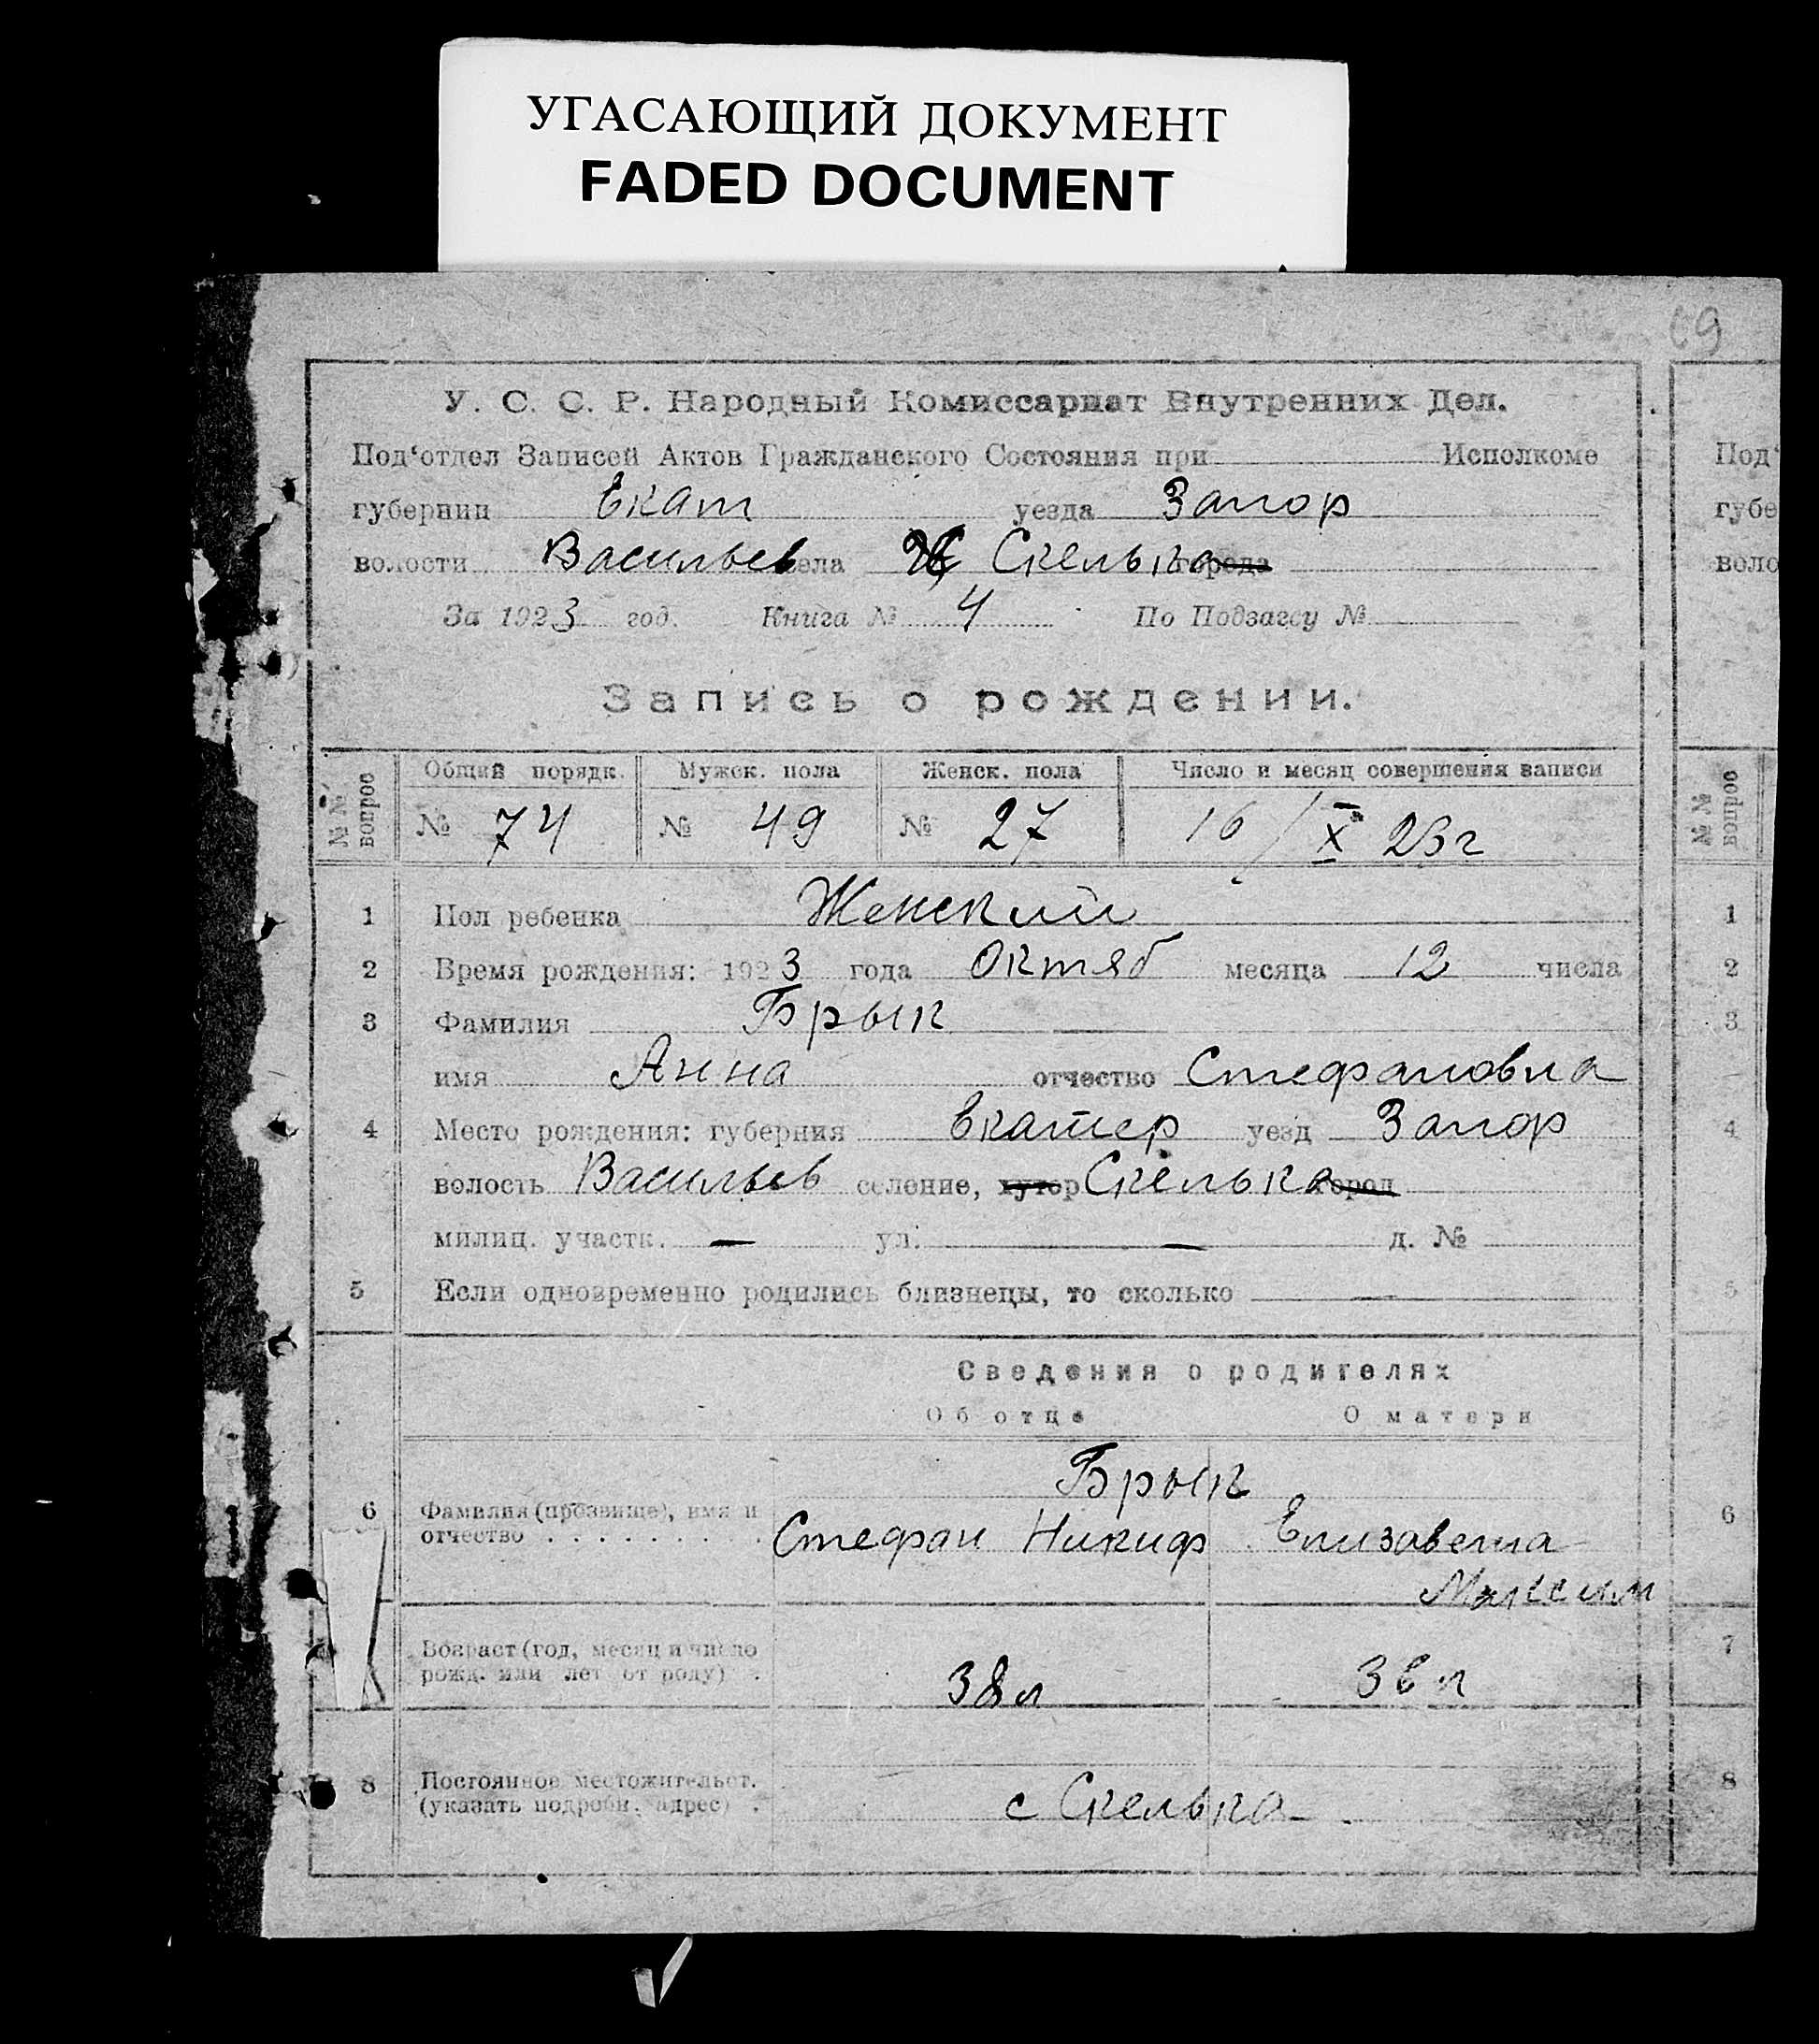 УГАСАЮЩИЙ ДОКУМЕНТ
FADED DOCUMENT
69
У. С. С. Р. Народный Комиссариат Внутренних Дел.
Под‘отдел Записей Актов Гражданского Состояния при Исполкоме
губернии Екат уезда Запор
волости Васильев села Скелька города
За 1923 год. Книга № 4 По Подзагсу №
Запись о рождении.
№ № вопрос
Общий порядк. Мужск. пола Женск. пола Число и месяц совершения записи
№ 74 № 49 № 27 16/X 23г
1 Пол ребенка Женский
2 Время рождения: 1923 года Октяб месяца 12 числа
3 Фамилия Брык
имя Анна отчество Стефановна
4 Место рождения: губерния Екатер уезд Запор
волость Васильев селение, хутор Скелька город
милиц. участк. — ул. — д. №
5 Если одновременно родились близнецы, то сколько —
Сведения о родителях
Об отце О матери
Брык
6 Фамилия (прозвище), имя и
отчество . . . . . . . . Стефан Никиф Елизавета
Максим
Возраст (год, месяц и число
рожд. или лет от роду) . 38 л 36 л
8 Постоянное местожительст.
(указать подробн. адрес) . с Скелька
Под‘
губе
воло
№ № вопрос
1
2
3
4
5
6
7
8